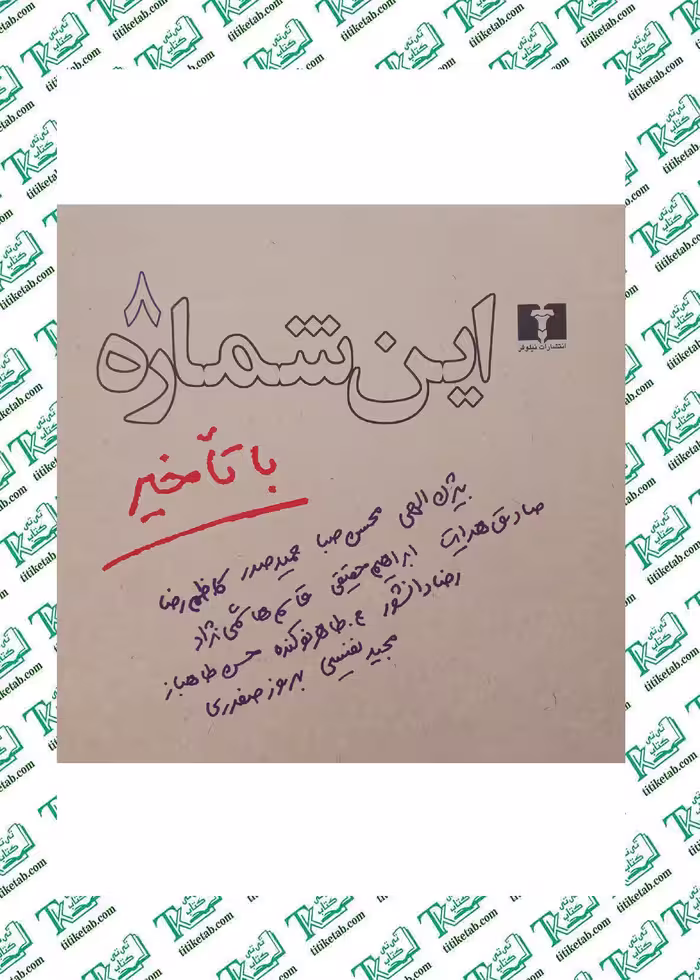 این شماره
۸
انتشارات نیلوفر
با تأخیر
بیژن الهی محسن صبا حمید صدر کاظم رضا
صادق هدایت ابراهیم حقیقی قاسم هاشمی نژاد
رضا دانشور ع. طاهر نوکنده حسن طاهباز
مجید نفیسی بهروز صفدری
تی تی کتاب
titiketab.com